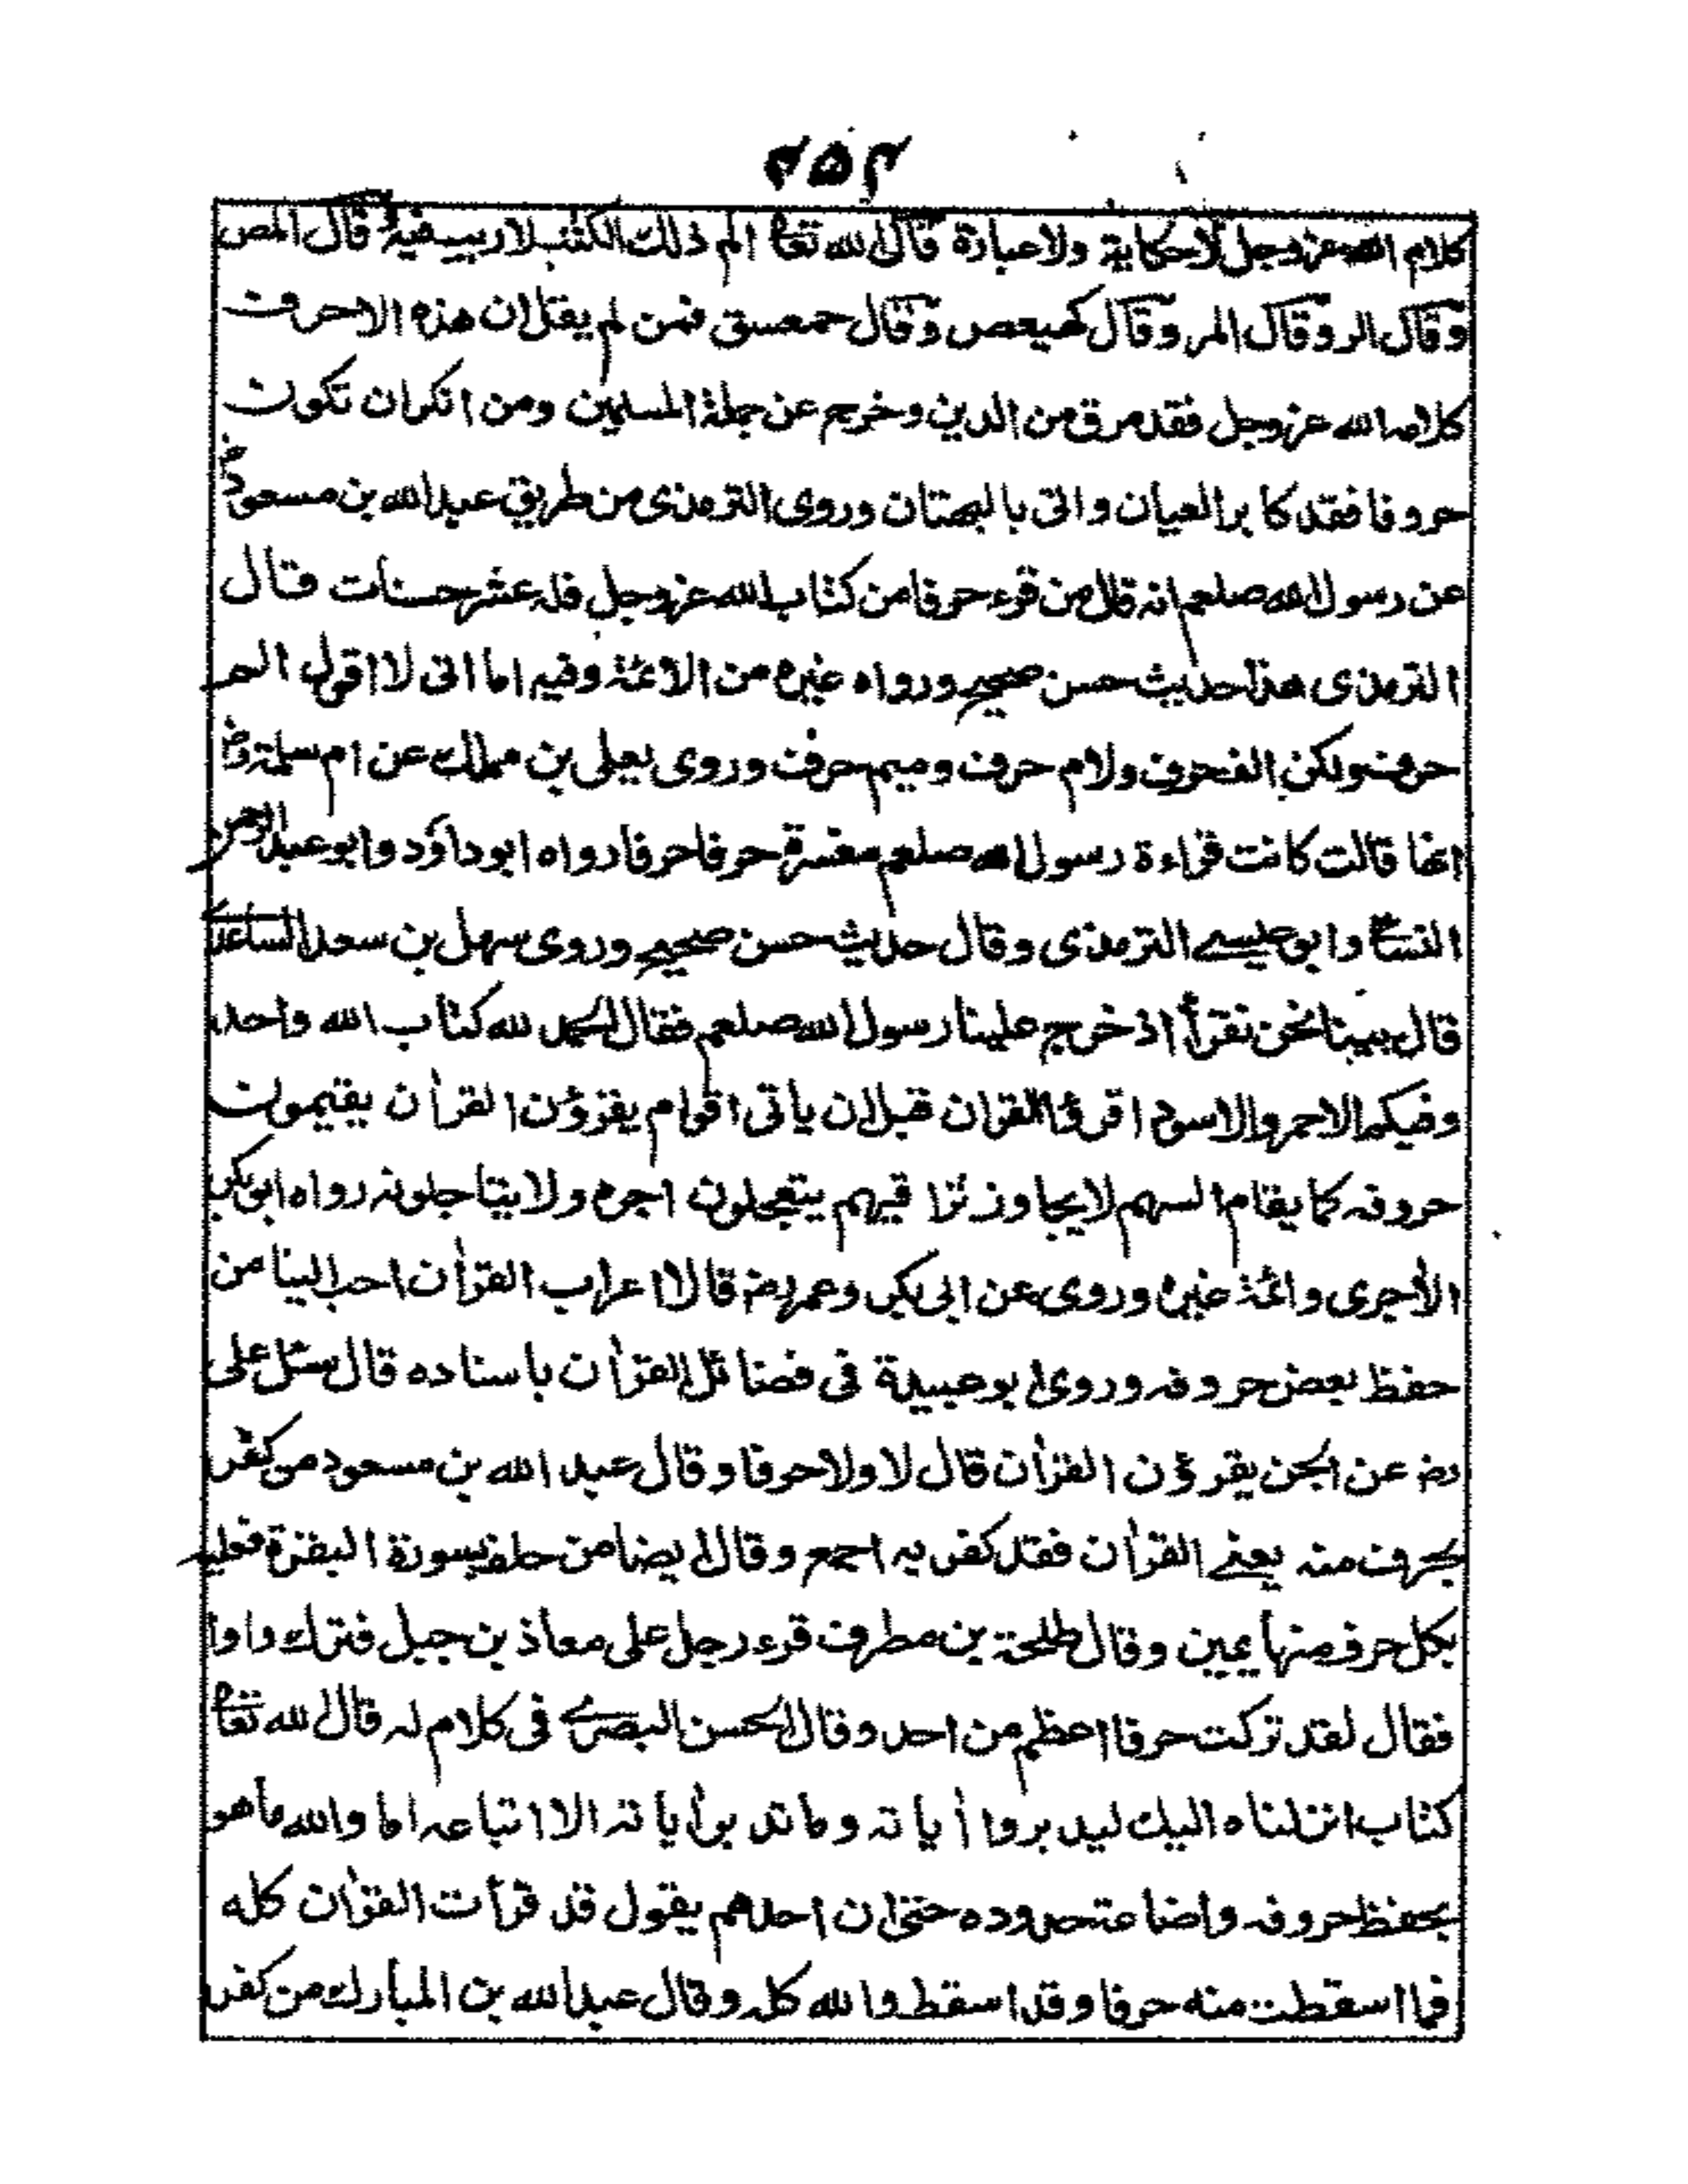 ٢٥٤
كلام الله عز وجل لا حكاية ولا عبارة قال الله تعا الم ذلك الكتٰب لا ريب فيه وقال المص
وقال الر وقال المر وقال كهيعص وقال حمعسق فمن لم يقل ان هذه الاحرف
كلام الله عز وجل فقد مرق من الدين وخرج عن جملة المسلمين ومن انكران تكون
حروفا فقد كابر العيان واتى بالبهتان وروى الترمذى من طريق عبد الله بن مسعود رض
عن رسول الله صلعم انه قال من قرء حرفا من كتاب الله عز وجل فله عشر حسنات قال
الترمذى هذا حديث حسن صحيح ورواه غيره من الائمة وفيه اما انى لا اقول الم
حرف ولكن الف حرف ولام حرف وميم حرف وروى يعلى بن مملك عن ام سلمة رض
انها قالت كانت قراءة رسول الله صلعم مفسرة حرفا حرفا رواه ابو داؤد وابو عبد الرحمن
النسائى وابو عيسے الترمذى وقال حديث حسن صحيح وروى سهل بن سعد الساعدے
قال بينا نحن نقرأ اذ خرج علينا رسول الله صلعم فقال الحمد لله كتاب الله واحد
وفيكم الاحمر والاسود اقرؤا القران قبل ان ياتى اقوام يقرؤن القرأن يقيمون
حروفه كما يقام السهم لا يجاوز تراقيهم يتعجلون اجره ولا يتاجلونه رواه ابو بكر
الأجرى وائمة غيره وروى عن ابى بكر وعمر رض قالا اعراب القرأن احب الينا من
حفظ بعض حروفه وروى ابو عبيدة فى فضائل القرأن باسناده قال سئل على
رض عن الجن يقرؤن القرأن قال لا ولا حرفا وقال عبد الله بن مسعود من كفر
بحرف منه يعنے القرأن فقد كفر به اجمع وقال ايضا من حلف بسورة البقرة فعليه
بكل حرف منها يمين وقال طلحة بن مطرف قرء رجل على معاذ بن جبل فترك واوا
فقال لقد تركت حرفا اعظم من احد وقال الحسن البصرے فى كلام له قال الله تعا
كتاب انزلناه اليك ليدبروا أياته وما تدبر أياته الا اتباعه اما والله ما هو
بحفظ حروفه واضاعة حدوده حتى ان احدهم يقول قد قرأت القرأن كله
فما اسقطت منه حرفا وقد اسقط والله كله وقال عبد الله بن المبارك من كفر